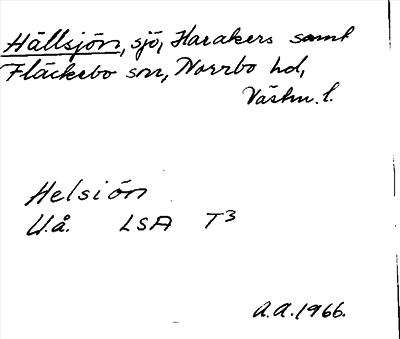 Hällsjön, sjö, Harakers samt
Fläckebo snr, Norrbo hd,
Västm. l.
Helsiön
U.å. LSA T3
A.A. 1966.